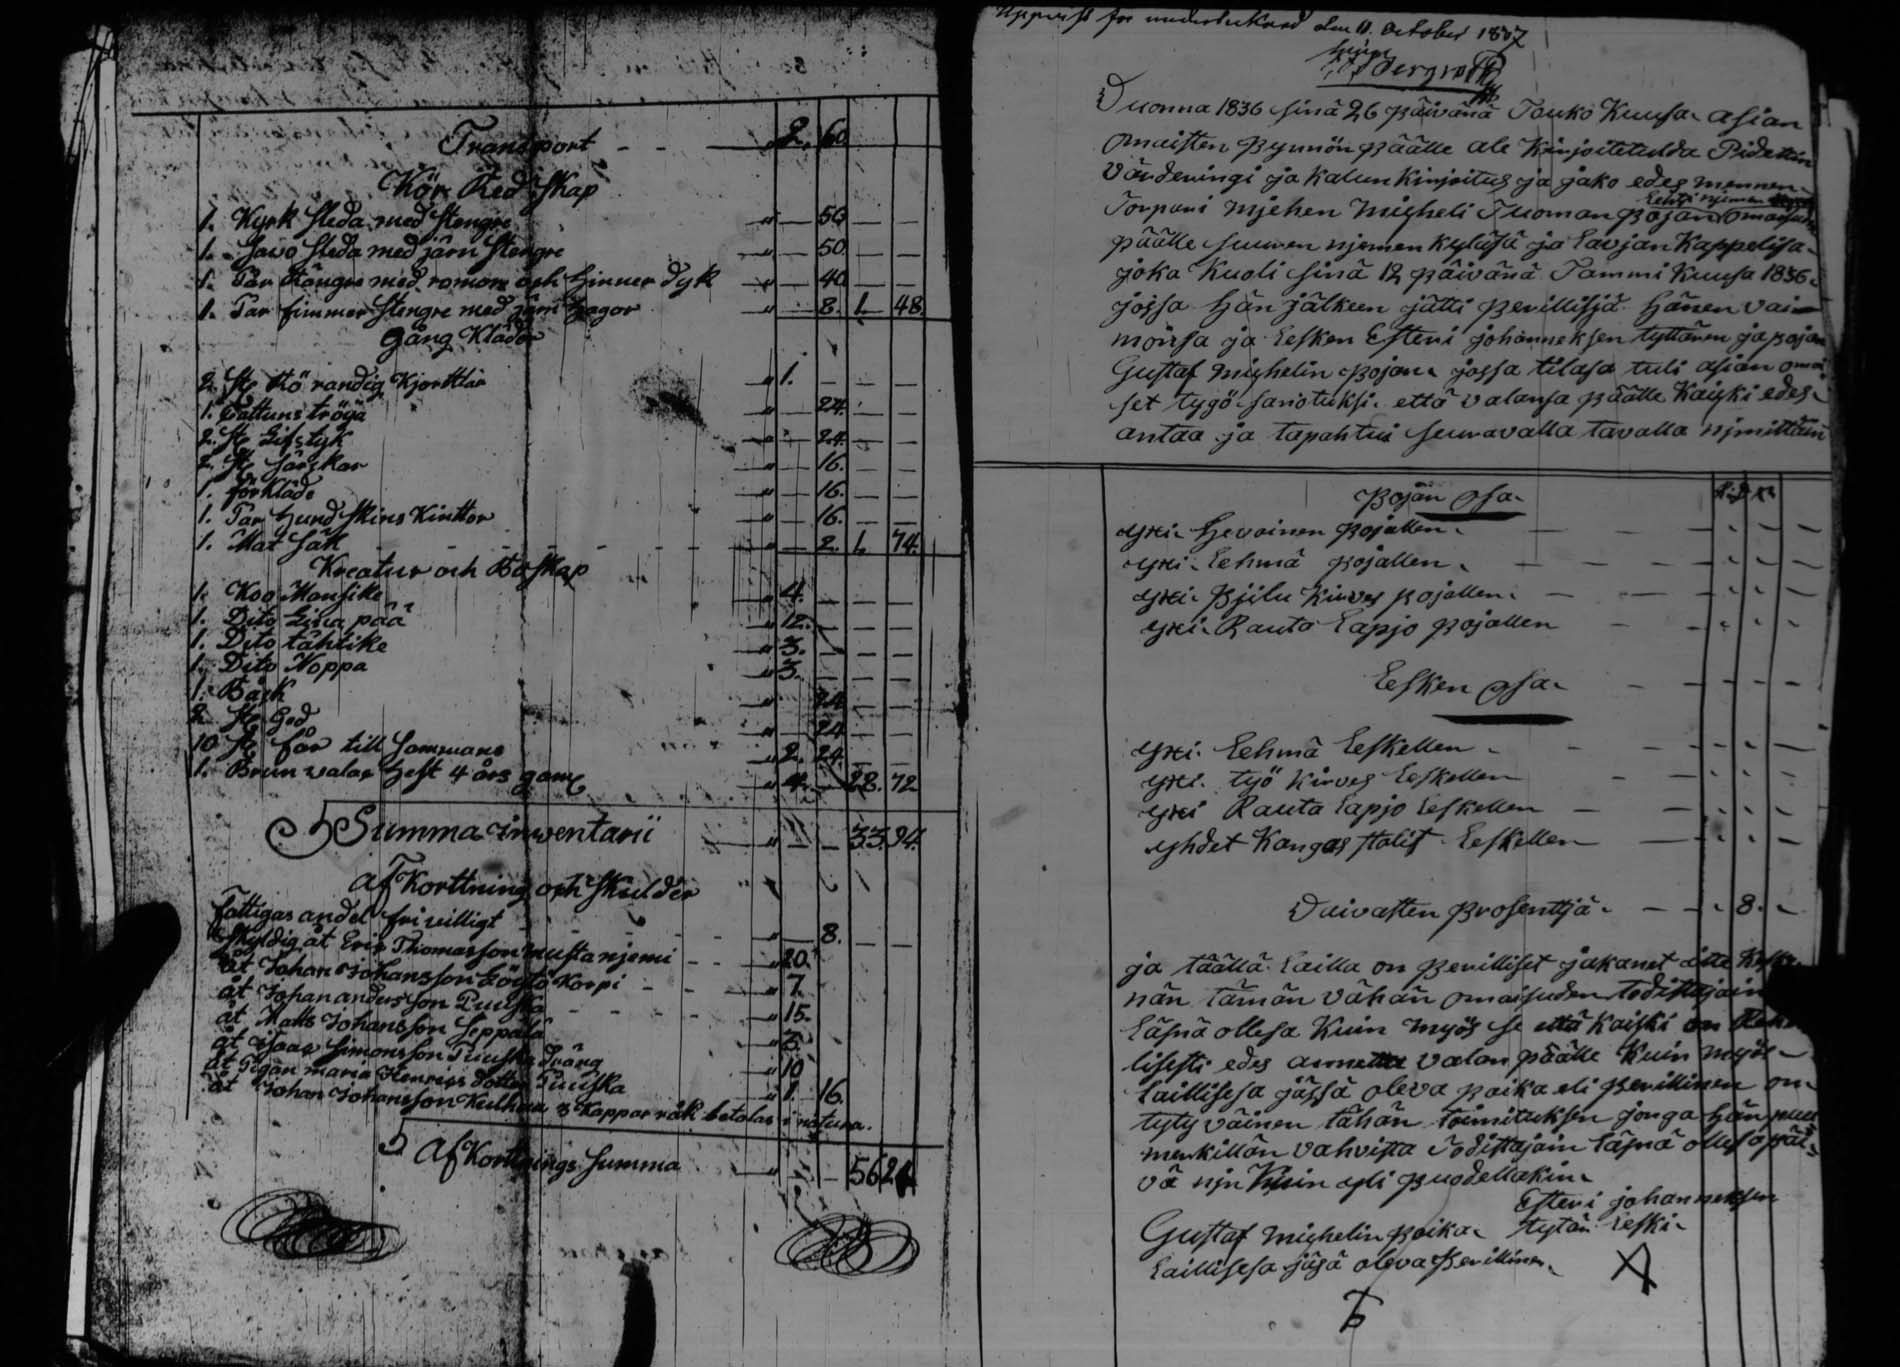 Transport " 2. 60
Kör Redskap
1. Kyrk Sleda med Stengre " — 50 — —
1. Savo Sleda med järn Stengre " — 50. — —
1. Par Rängre med romor och Hinner dyk " — 40 — —
1. Par fimmer Stengre med järn Hagor " — 8. 1. 48
Gång Kläder
2. St. Rö randig Kjorttlar " 1. — — —
1. Cattuns tröya " — 24. — —
2. St. Lifstyk " — 24. — —
2. St. Särskar — 16. — —
1. förkläde " — 16. — —
1. Par Hundskins Kinttor " — 16. — —
1. Mat Säk " — 2. 1. 74.
Kreatur och Boskap
1. Koo Mansike " 4. — — —
1. Dito Lina pää " 12. — — —
1. Dito tähtike " 3. — — —
1. Dito Noppa " 3. — — —
1. Båsk 24 — —
2 St. God " 24 — —
10 St. får till Sammans " 2. 24. —
1. Brun valax Hest 4 års gam " 4. — 28. 72
Summa inventarii " — — 33.94.
Af Korttning och Skulder
fattigas andel friwilligt " — 8. — —
Skyldig åt Eric Thomasson Mustanjemi " 20.
åt Johan Johansson Löytö Korpi " 7.
åt Johan andersson Puuska " 15.
åt Matts Johansson Seppälä " 2.
åt Isaac Simonsson Puuska dräng " 10
åt Pigan maria Henrics dotter Puuska " 1. 16.
åt Johan Johansson Keilhua 3 Kappar råk betalas i natura.
Af Korttnings Summa " — — 56 24
Uppvist for underteknad den 11. October 1837
Duonna 1836 sinä 26 päivänä Touko Kuusa asian
omaisten pynnön päälle ale Kirjoitetulda Pidettin
värderingi ja kalun kirjoitus ja jako edes mennen
Torpari mjehen Migheli Tuoman pojan omaisuden
päälle Suuren njemen kyläsä ja Lavjan Kappelisa
joka Kuoli sinä 12 päivänä Tammi Kuusa 1836.
jossa hän jälkeen jätti perillisjä hänen vai
monsa ja Lesken Esteri johanneksen tyttären ja pojan
Gustaf mighelin pojan jossa tilasa tuli asian omai
set tygö sanotuksi että valansa päälle Kaiki edes
antaa ja tapahtui seuravalla tavalla njmittäin
Pojan osa
yxi Hevoinen pojallen
yxi Lehmä pojallen
yxi Pjilu Kirves pojallen
yxi Rauto Lapjo pojallen
Lesken osa
yxi Lehmä Leskellen
yxi työ Kirves Leskellen
yxi Rauta Lapjo Leskellen
yhdet Kangas stolit Leskellen
Vaivasten prosenttjä — 8.
ja täällä lailla on perilliset jakanet
nän tämän vähän omaisuden todistajain
läsnä ollesa Kuin myös se että Kaikki on
lisesti edes annettu valan päälle Kuin myös
laillisesa jässä oleva poika eli perillinen on
tyty väinen tähän toimituksen jonga hän puu
merkillän vahvista todistajain läsnä ollesa
vä njn Kuin yli puodellakin
Esteri johanneksen
Gustaf mighelin poika tytär Leski
Laillisesa jäsä oleva perillinen